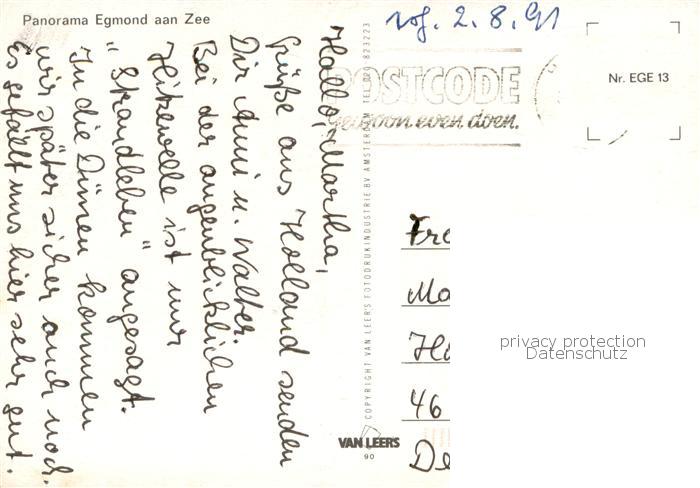 Panorama Egmond aan Zee
Hallo, Martha,
Grüße aus Holland senden
Dir Anni u. Walter.
Bei der augenblicklichen
Hitzewelle ist nur
"Strandleben" angesagt.
In die Dünen kommen
wir später sicher auch noch.
Es gefällt uns hier sehr gut.
COPYRIGHT VAN LEER'S FOTODRUKINDUSTRIE BV AMSTERDAM TEL 020-823223
VAN LEERS
90
2.8.91
POSTCODE
gewoon even doen.
Nr. EGE 13
Fra
Ma
Ho
46
De
privacy protection
Datenschutz